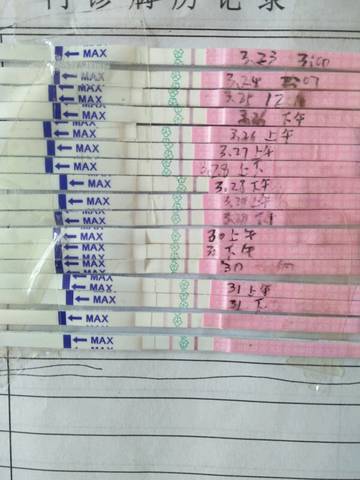 门诊病历记录
MAX 3.23 3:00
MAX 3.24
MAX 3.25 12
MAX 3.26 下午
MAX 3.26 上午
MAX 3.27 上午
MAX 3.28 上午
MAX 3.28 下午
MAX 上午
MAX 下午
MAX 30 上午
MAX 下午
MAX 30
MAX
MAX 31 上午
MAX 31 下
MAX
MAX